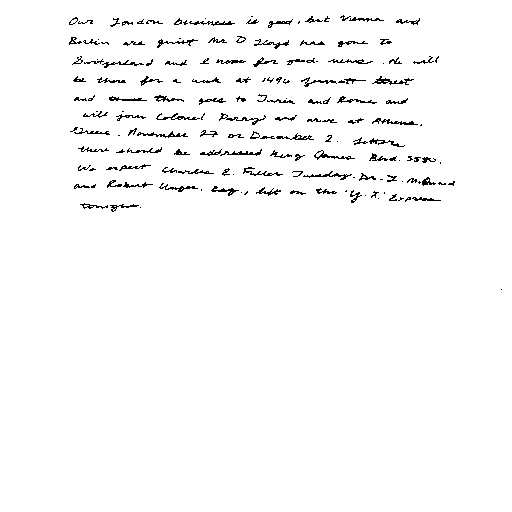 Our London business is good, but Vienna and
Berlin are quiet Mr D Lloyd has gone to
Switzerland and I hope for good news. He will
be there for a week at 1496 Zermatt Street
and then goes to Turin and Rome and
will join Colonel Parry and arive at Athens,
Greece. November 27 or December 2. Letters
there should be addressed King James Blvd. 3580.
We expect Charles E. Fuller Tuesday. Dr. L. McQuaid
and Robert Unger. Esq., left on the 'Y. X.' Express
tonight.